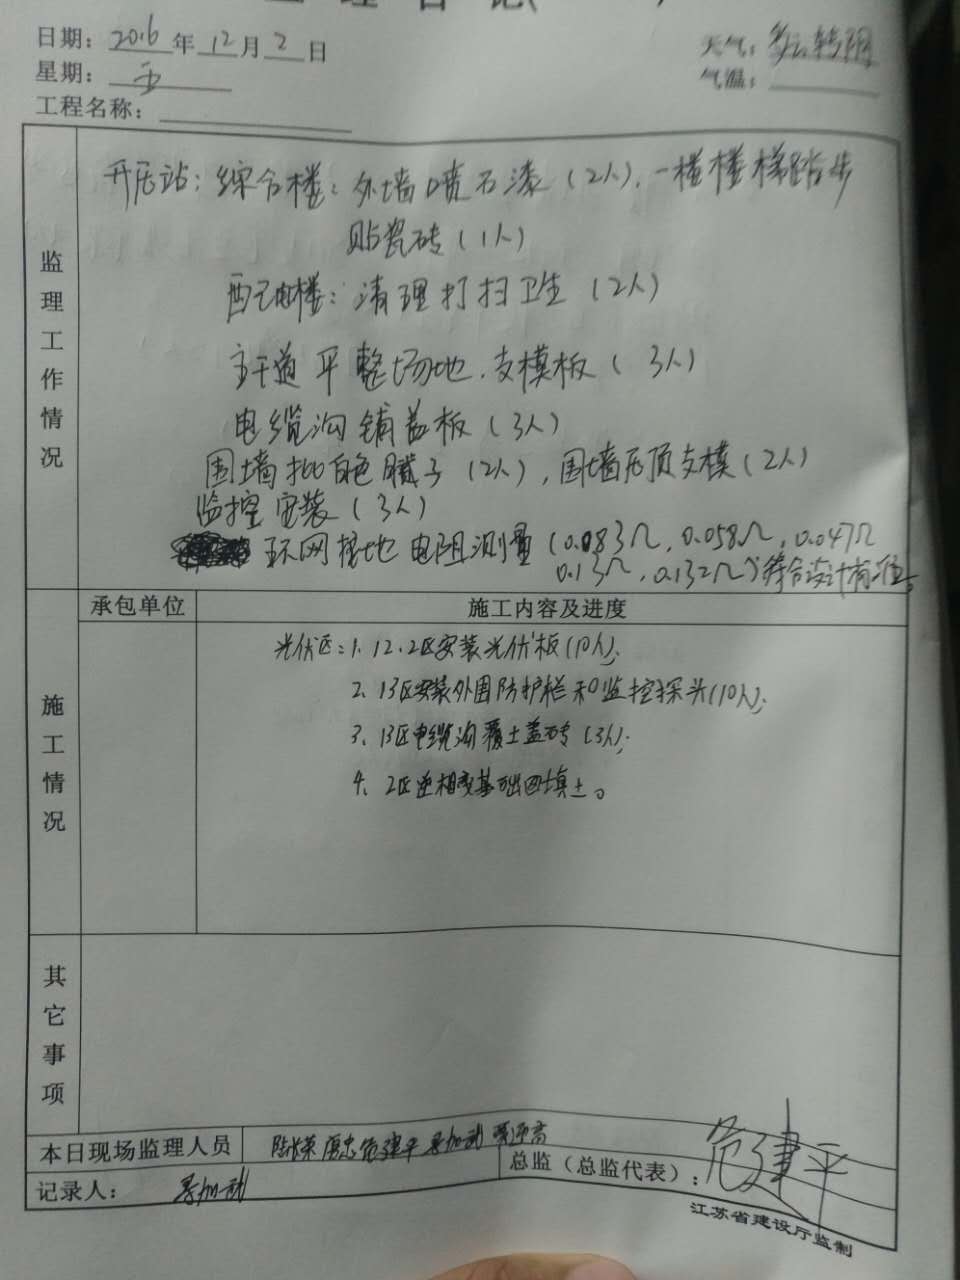 监理日记(
日期：2016年12月2日
天气：多云转阴
星期：五
气温：
工程名称：
监理工作情况
开关站：综合楼：外墙喷石漆（2人），一楼楼梯踏步
贴瓷砖（1人）
配电楼：清理打扫卫生（2人）
主干道平整场地，支模板（3人）
电缆沟铺盖板（3人）
围墙批白色腻子（2人），围墙压顶支模（2人）
监控安装（3人）
环网接地电阻测量（0.083Ω，0.058Ω，0.047Ω
0.13Ω，0.132Ω）符合设计标准。
施工情况
承包单位
施工内容及进度
光伏区：1、12、2区安装光伏板（10人）；
2、13区安装外围防护栏和监控探头（10人）；
3、13区电缆沟覆土盖砖（3人）；
4、2区逆相变基础回填土。
其它事项
本日现场监理人员
危建平
总监（总监代表）：危建平
记录人：
江苏省建设厅监制